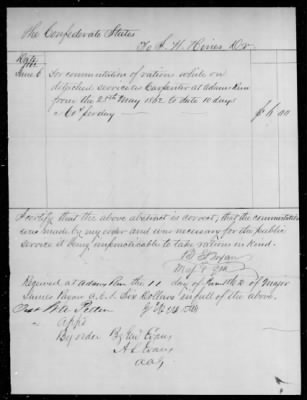 The Confederate States
To S. H. Hines, Dr
Date
1862
June 6 For commutation of rations while on
detached service as Carpenter at Adams Run
from the 28th May 1862 to date 10 days
60¢ per day $6.00
I certify that the above abstract is correct, that the commutation
was made by my order and was necessary for the public
service it being impracticable to take rations in kind.
Maj &
Received at Adams Run the 11 day of June 1862 of Major
James six Dollars in full of the above.
Test
By order By Genl Evans
A L Evans
AAG